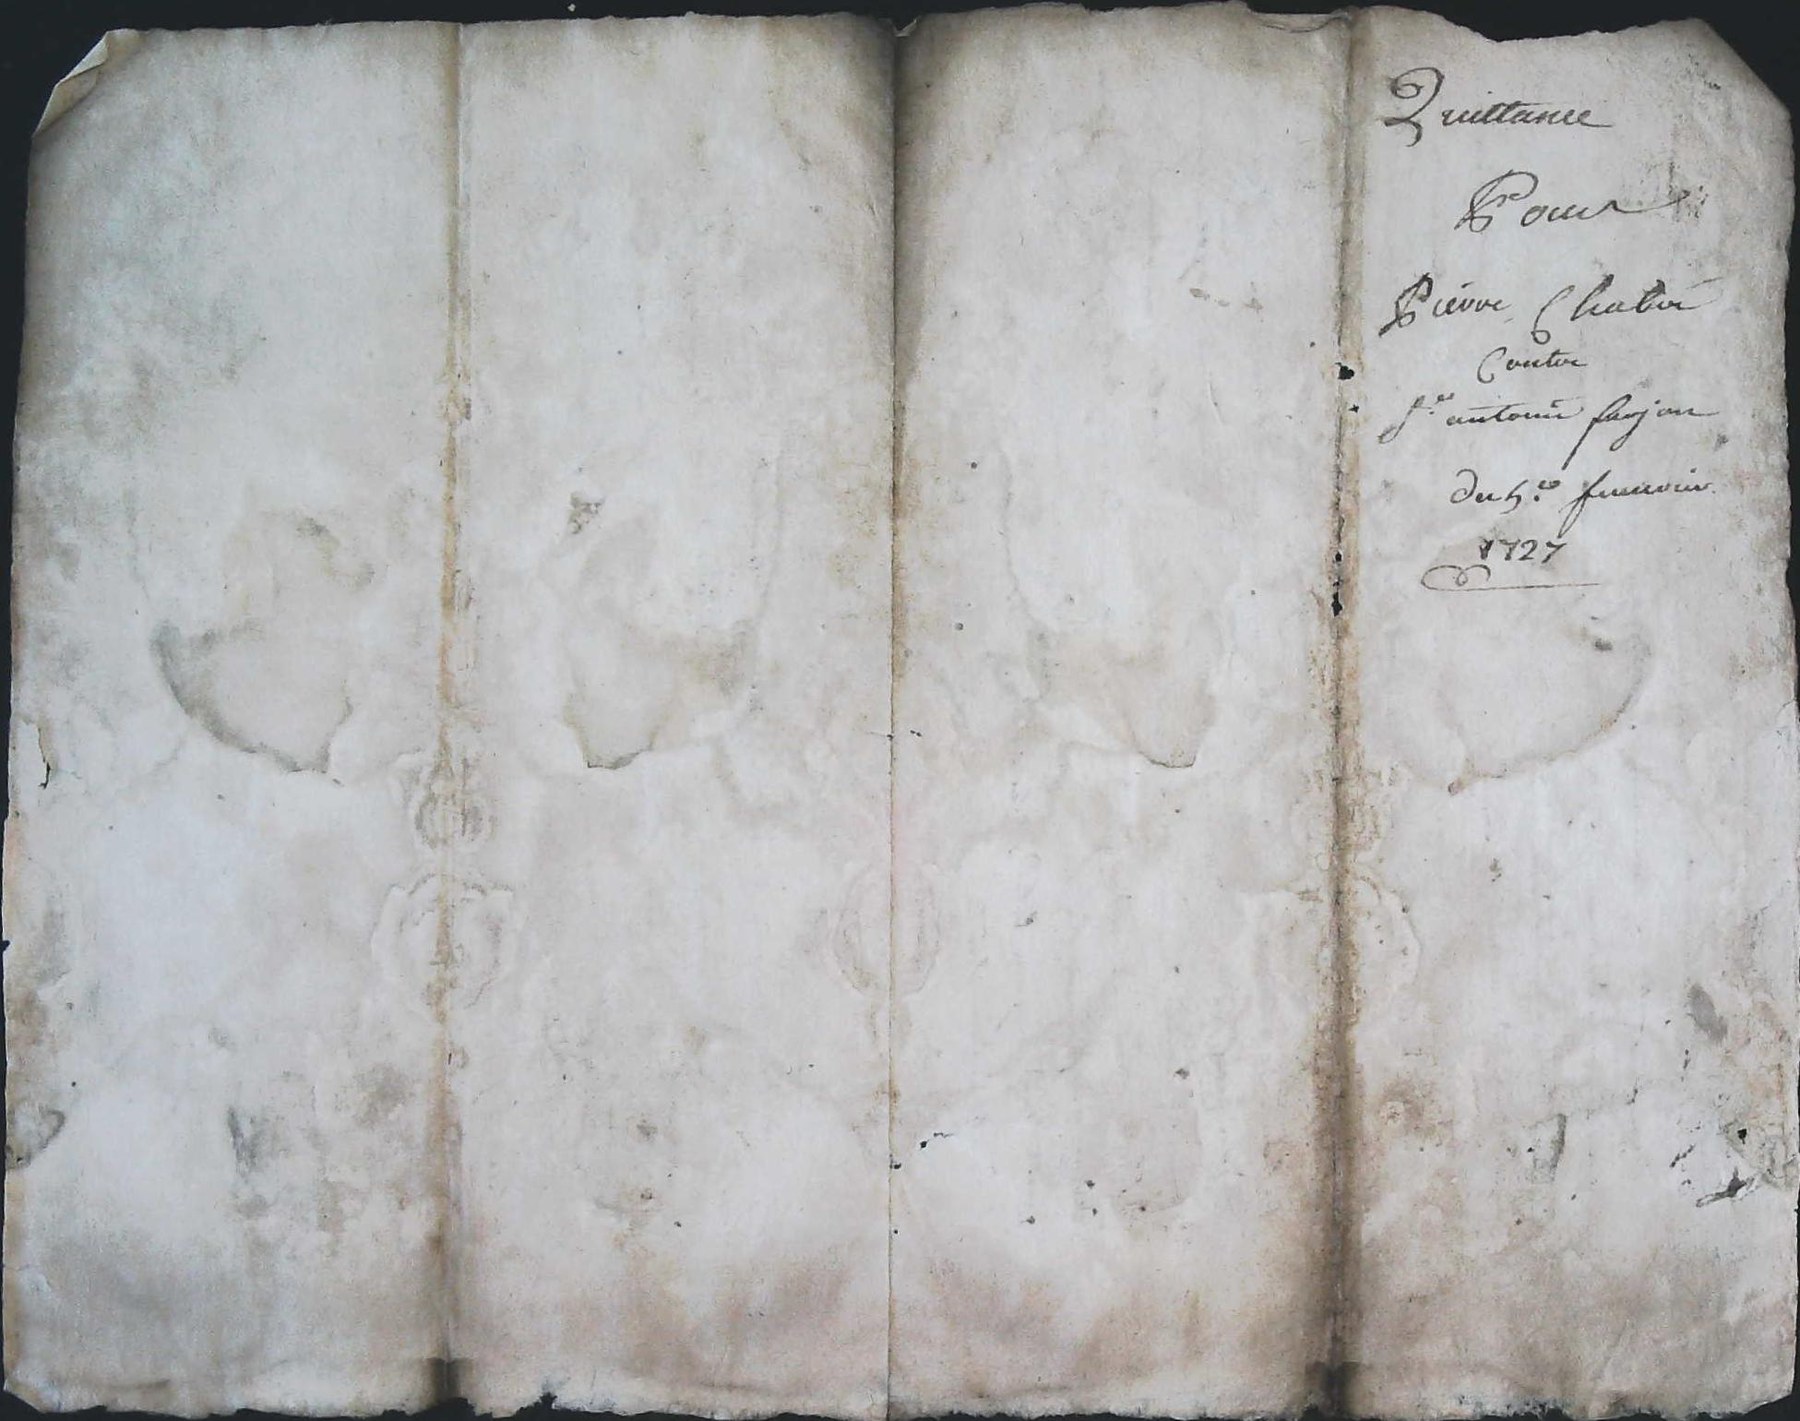 Quittance
Pour
Pierre Chabré
Contre
Sr antoine farjon
du 5e
1727